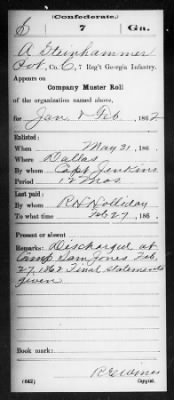 (Confederate.)
E 7 Ga.
A Steinhammer
Pvt, Co. C, 7 Reg't Georgia Infantry.
Appears on
Company Muster Roll
of the organization named above,
for Jan & Feb, 1862
Enlisted:
When May 31, 186 .
Where Dallas
By whom Capt Jenkins
Period 12 Mos
Last paid:
By whom R H Holliday
To what time Feb 27, 186 .
Present or absent
Remarks: Discharged at
Camp Sam Jones Feb.
27, 1862 Final Statements
given
Book mark:
(642) Copyist.